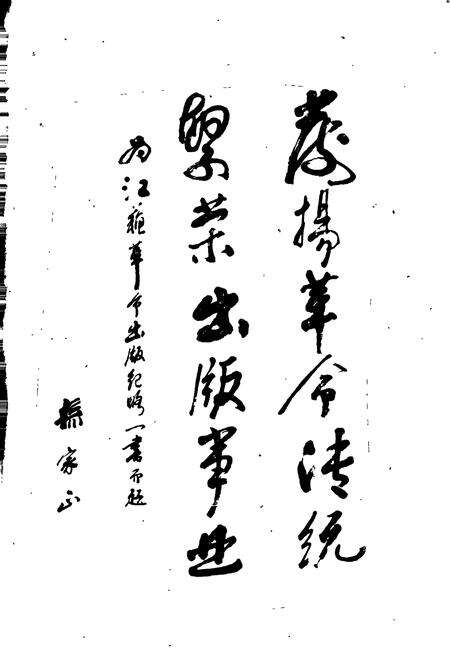 發揚革命传统
繁荣出版事业
为江苏革命出版纪略一书而题
孙家正